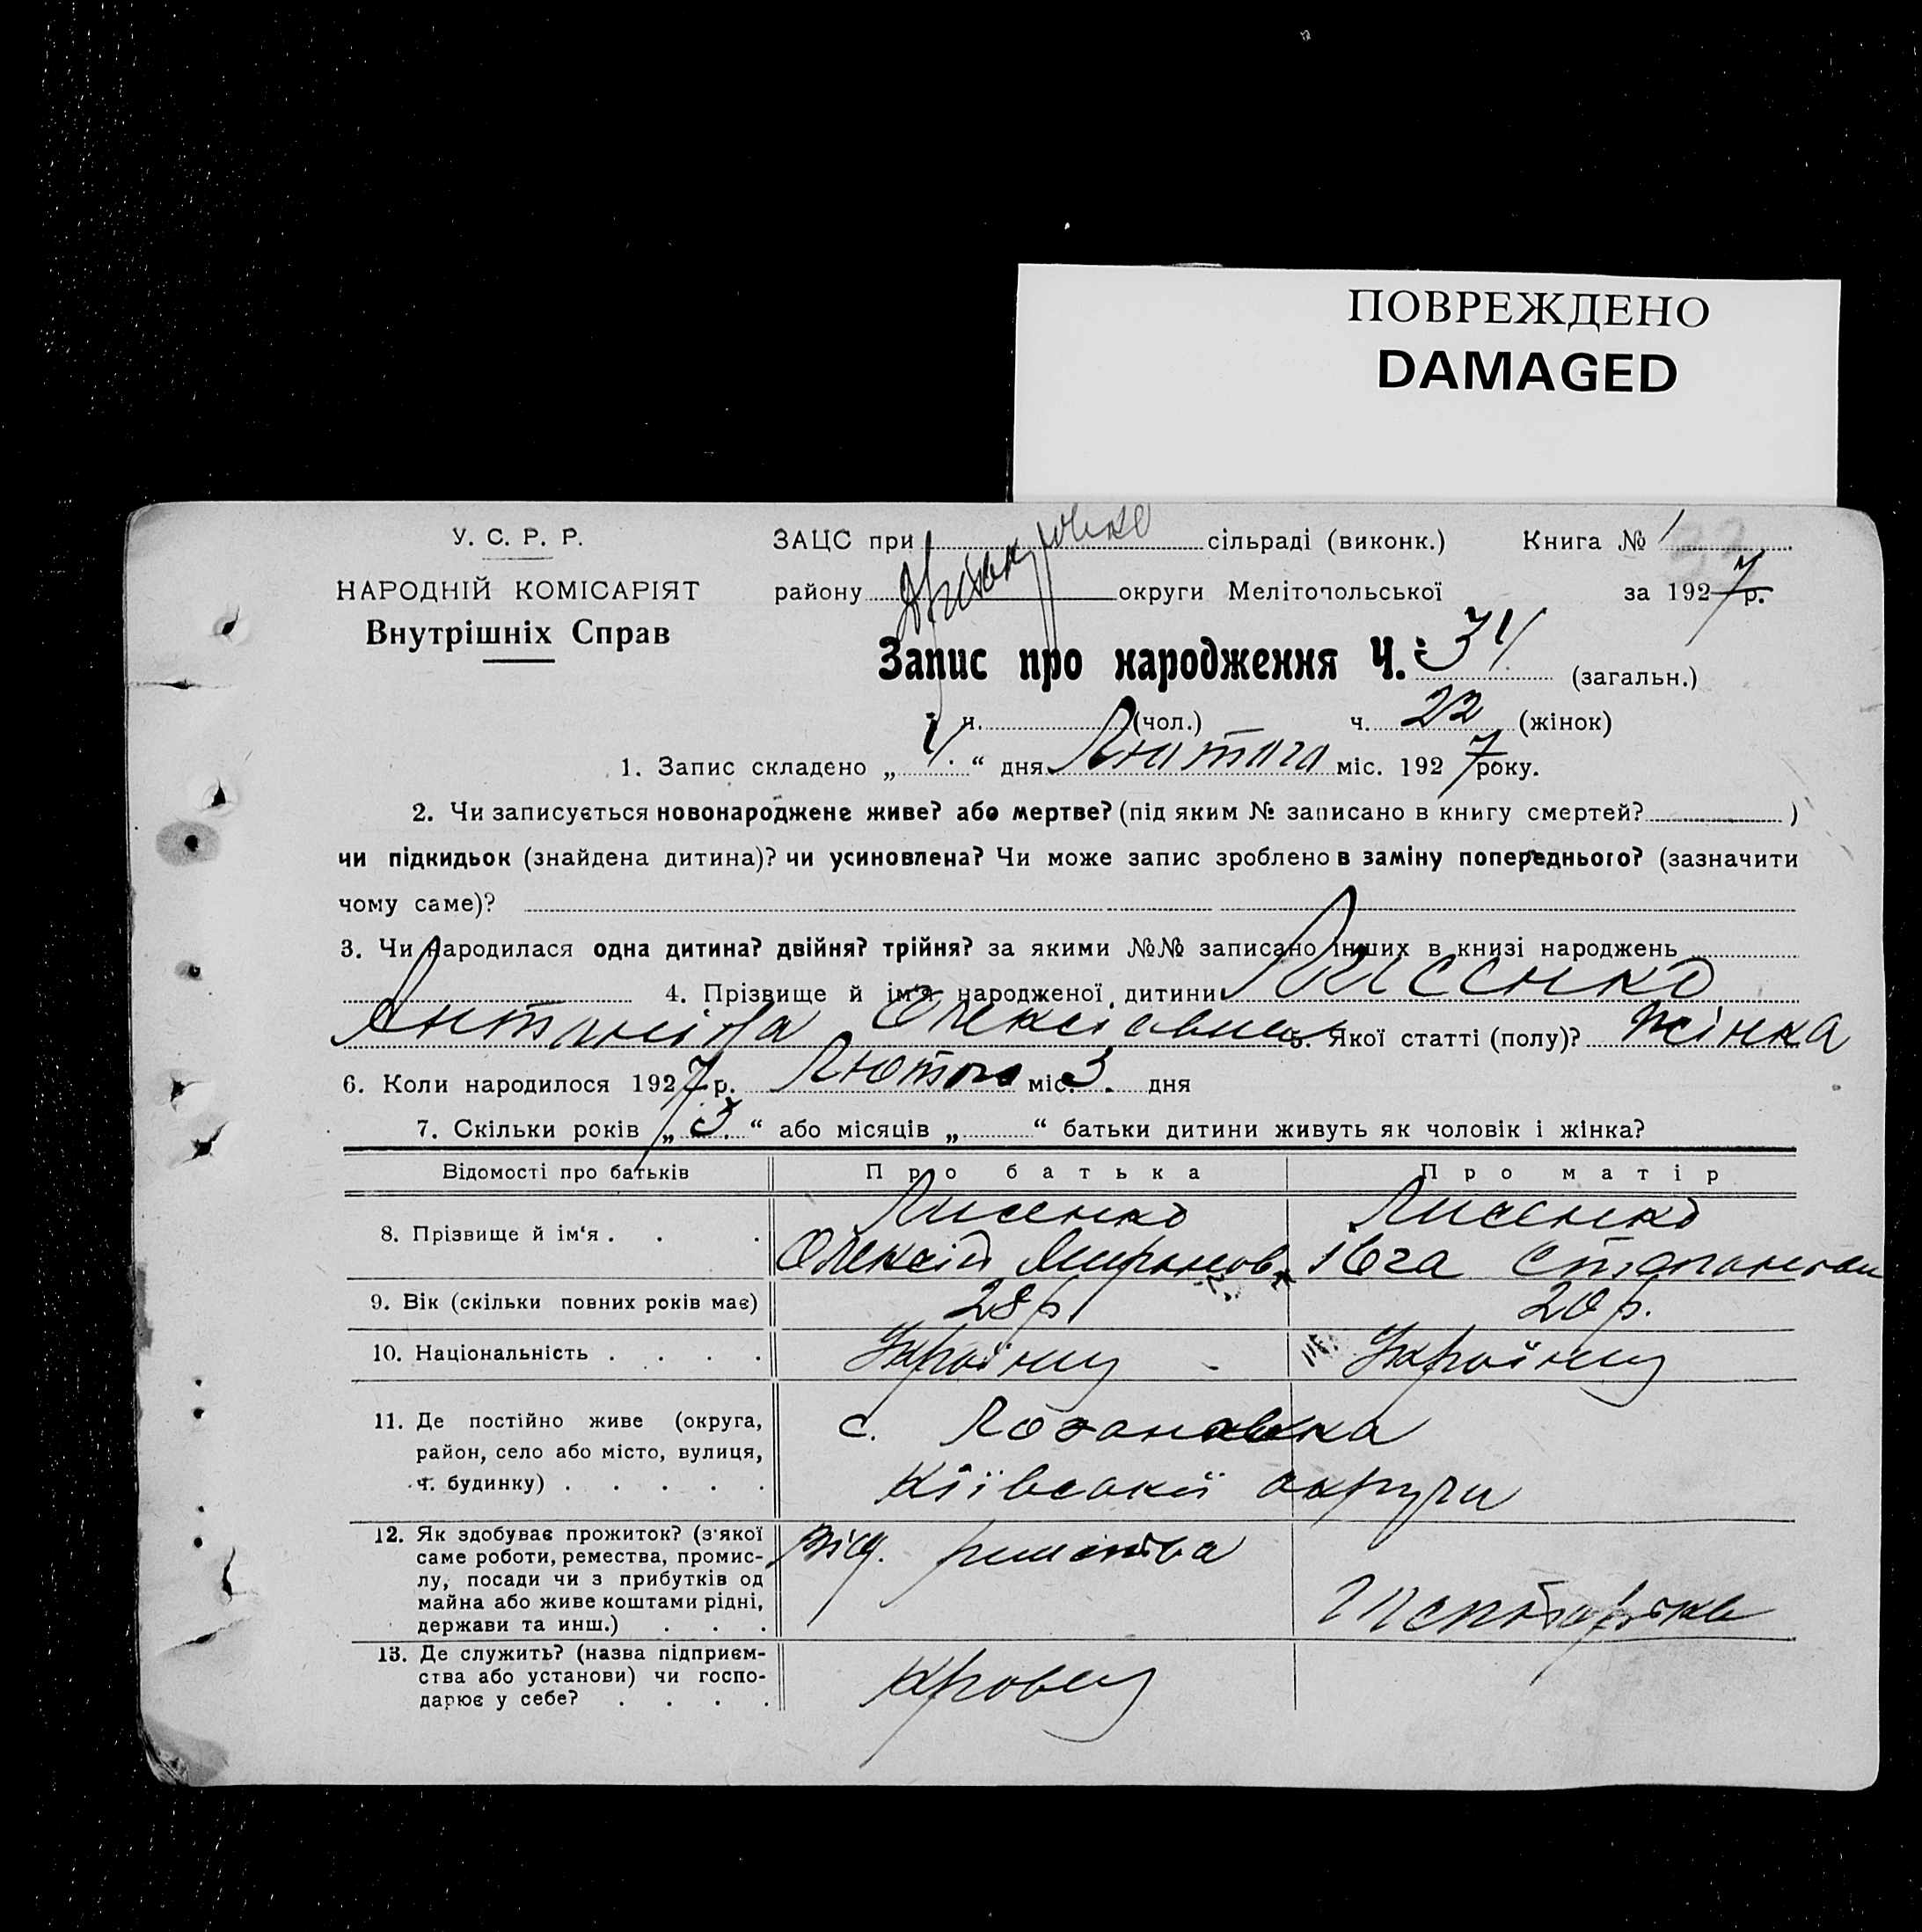 ПОВРЕЖДЕНО
DAMAGED
У. С. Р. Р.
НАРОДНІЙ КОМІСАРІЯТ
Внутрішніх Справ
ЗАЦС при сільраді (виконк.) Книга № 1
району округи Мелітопольської за 1927 р.
Запис про народження Ч. (загальн.)
ч. (чол.) ч. 22 (жінок)
1. Запис складено „ “ дня Лютого міс. 1927 року.
2. Чи записується новонароджене живе? або мертве? (під яким № записано в книгу смертей? )
чи підкидьок (знайдена дитина)? чи усиновлена? Чи може запис зроблено в заміну попереднього? (зазначити
чому саме)?
3. Чи народилася одна дитина? двійня? трійня? за якими №№ записано інших в книзі народжень
4. Прізвище й ім'я народженої дитини Лисенко
Олексієвна 5. Якої статті (полу)? жінка
6. Коли народилося 1927 р. Лютого міс. 3. дня
7. Скільки років „3.“ або місяців „ “ батьки дитини живуть як чоловік і жінка?
Відомості про батьків Про батька Про матір
8. Прізвище й ім'я . . . Лисенко Лисенко
Олексій Миронов. Івга
9. Вік (скільки повних років має) 28 р. 20 р.
10. Національність . . . . Українц Українц
11. Де постійно живе (округа,
район, село або місто, вулиця,
ч. будинку) . . . . .
с.
Київської округи
12. Як здобуває прожиток? (з якої
саме роботи, ремества, промис-
лу, посади чи з прибутків од
майна або живе коштами рідні,
держави та инш.) . . .
від.
13. Де служить? (назва підприєм-
ства або установи) чи госпо-
дарює у себе? . . . .